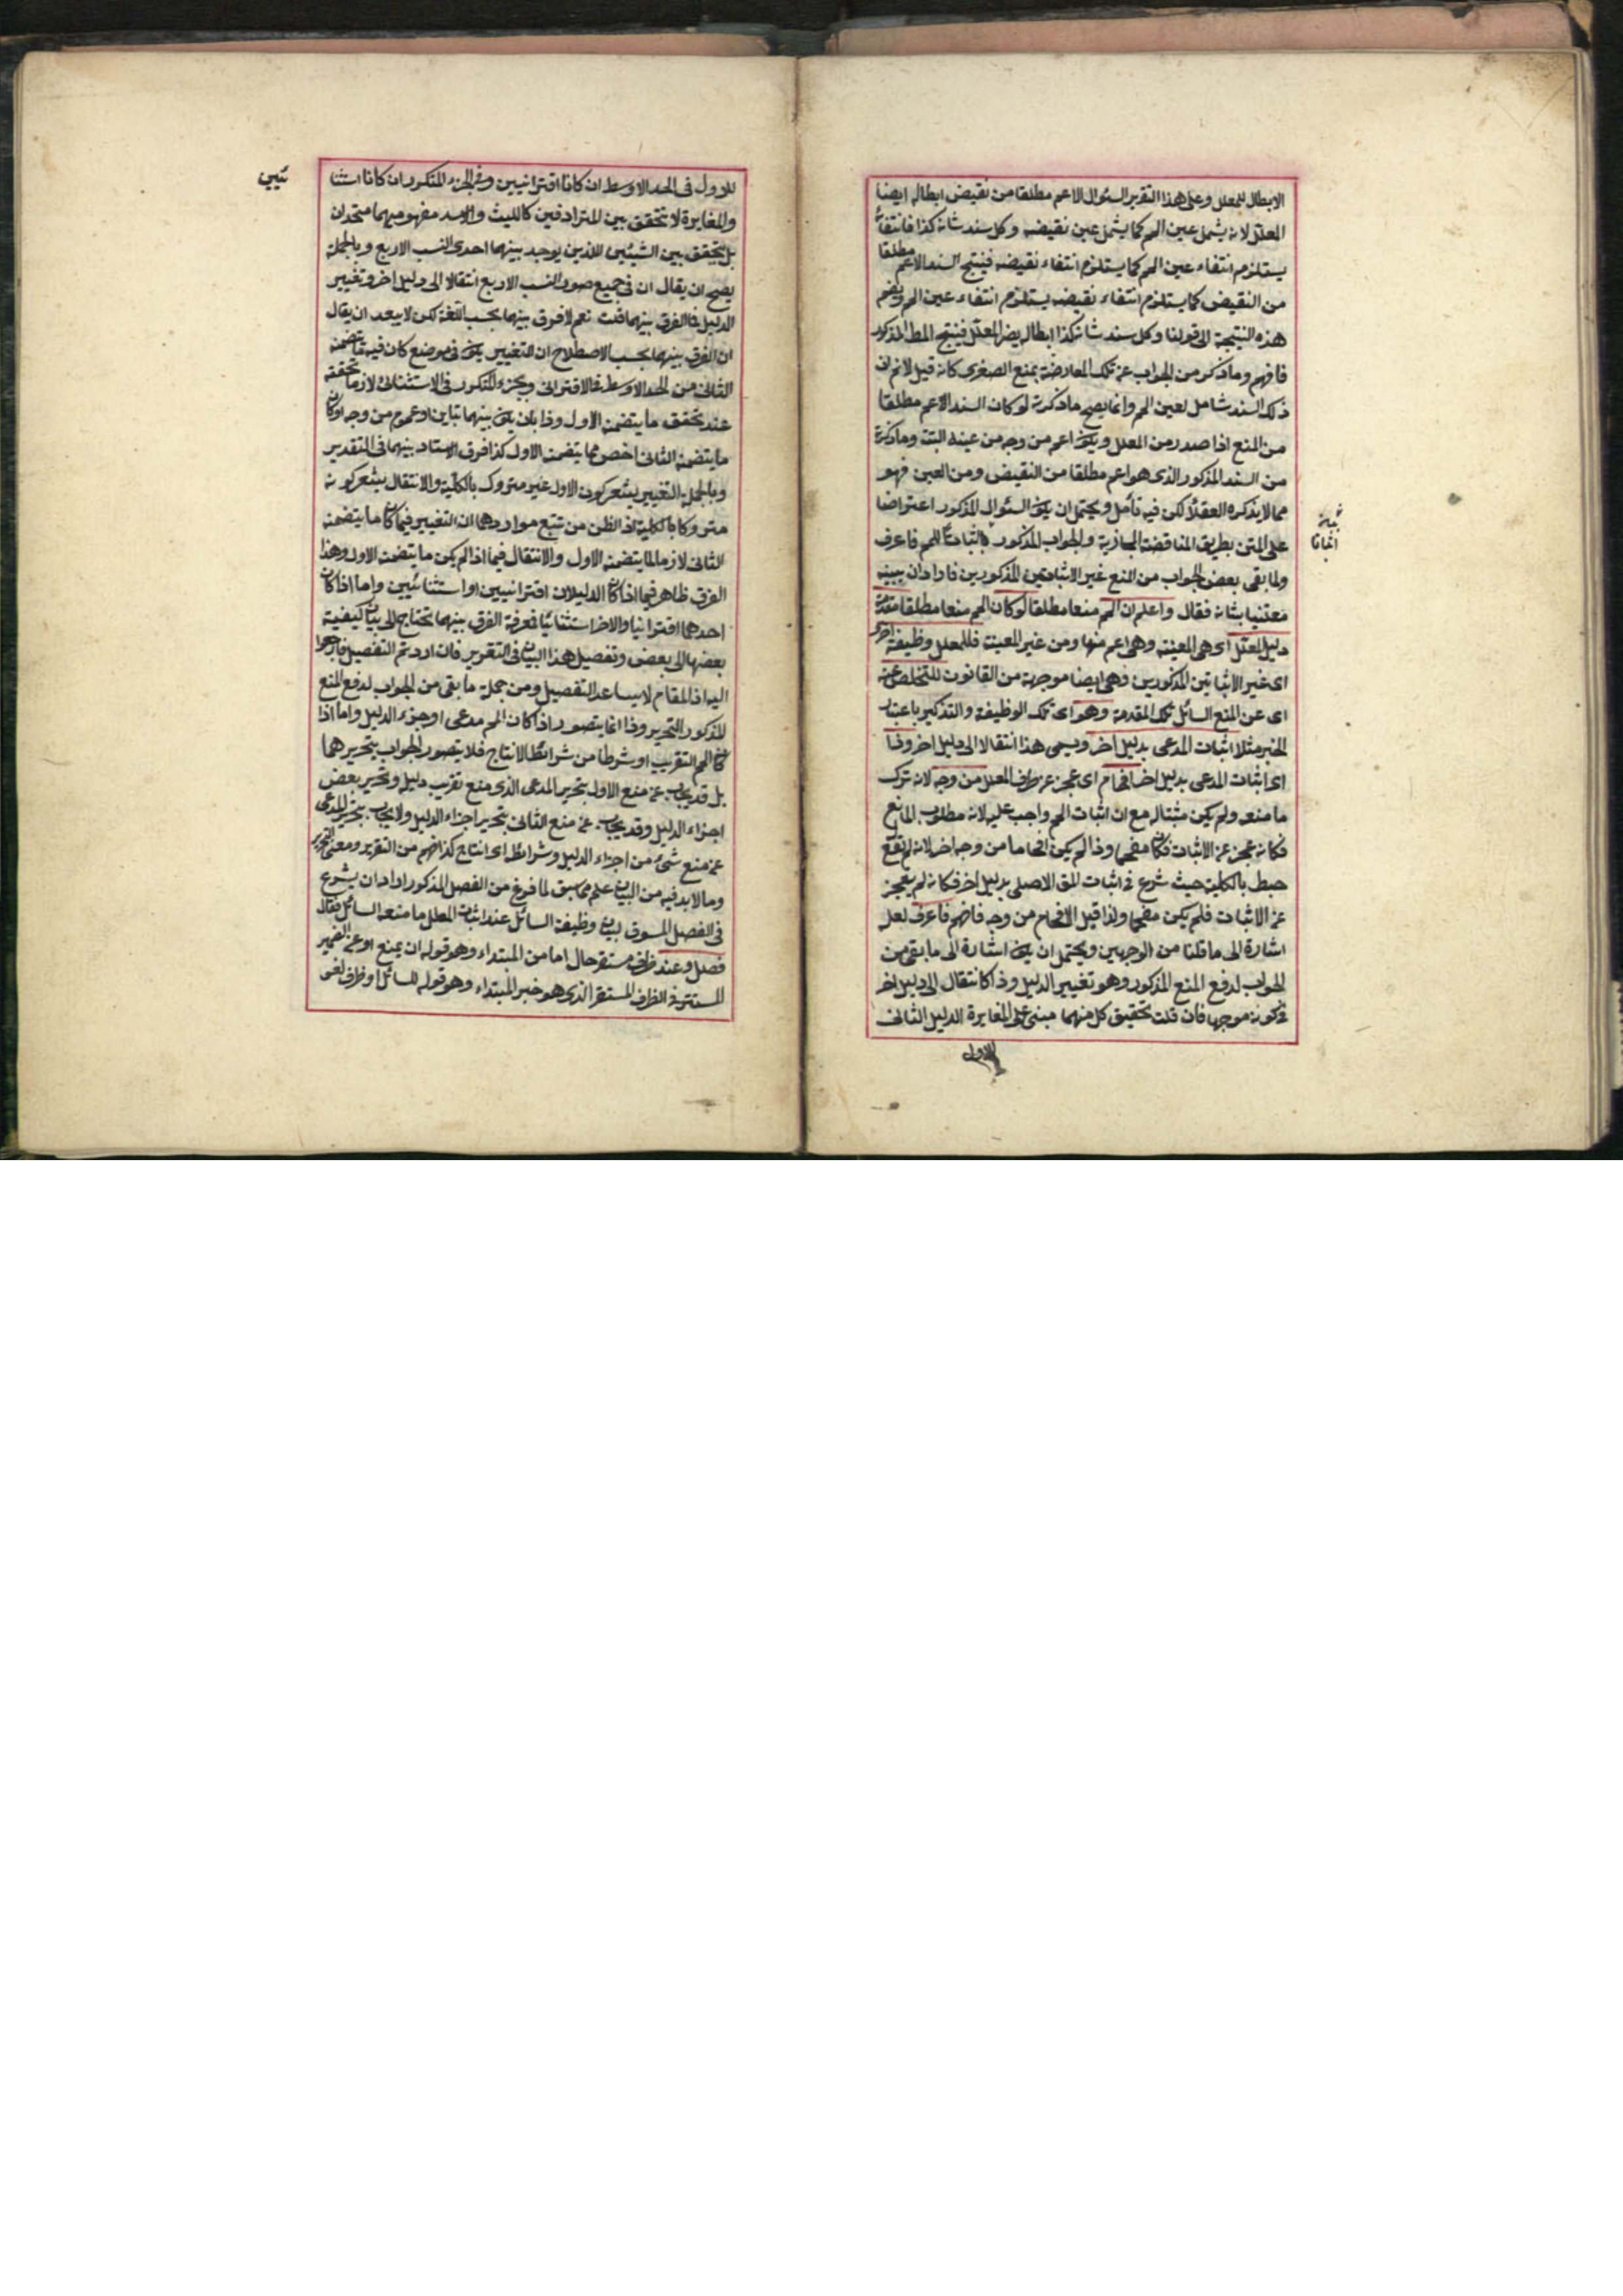 الابطال للمعلل وعلى هذا التقرير السئوال الاعم مطلقا من نقيض ابطاله ايضا
المعلل لانه يشمل عين المم كما يشمل عين نقيضه وكل سند شانه كذا فانتفاؤه
يستلزم انتفاء عين المم كما يستلزم انتفاء نقيضه فينتج السند الاعم مطلقا
من النقيض كما يستلزم انتفاء نقيضه يستلزم انتفاء عين المم ويضم
هذه النتيجة الى قولنا وكل سند شانه كذا ابطاله يضر المعلل فينتج المط المذكور
فافهم وما ذكر من الجواب عن تلك المعارضة بمنع الصغرى كانه قيل لانم ان
ذلك السند شامل لعين المم وانما يصح ما ذكرته لو كان السند الاعم مطلقا
من المنع اذا صدر من المعلل ويكون اعم من وجه من عينه البتة وما ذكرته
من السند المذكور الذى هو اعم مطلقا من النقيض ومن العين فهو
مما لا يذكره العقلاء لكن فيه تأمل ويحتمل ان يكون السئوال المذكور اعتراضا
على المتن بطريق المناقضة المجازية والجواب المذكور اثباتا للمم فاعرف
ولما بقى بعض الجواب من المنع غير الاثباتين المذكورين فاراد ان يبينه
معتنيا بشانه فقال واعلم ان المم منعا مطلقا لو كان المم منعا مطلقا مقدمة
دليل المعلل اى هى المعينة وهى اعم منها ومن غير المعينة فللمعلل وظيفة اخرى
اى غير الاثباتين المذكورين وهى ايضا موجهة من القانون للتخلص عنه
اى عن المنع السائل تلك المقدمة وهو اى تلك الوظيفة والتذكير باعتبار
الخبر مثلا اثبات المدعى بدليل اخر ويسمى هذا انتقالا الى دليل اخر وذا
اى اثبات المدعى بدليل اخر افحام اى عجز عن طرف المعلل من وجه لانه ترك
ما منعه ولم يكن مثبتا له مع ان اثبات المم واجب عليه لانه مطلوب المانع
فكانه عجز عن الاثبات فكان مفحما وذا لم يكن افحاما من وجه اخر لانه لم يقع
حبط بالكلية حيث شرع فى اثبات المق الاصلى بدليل اخر فكانه لم يعجز
عن الاثبات فلم يكن مفحما ولذا قيل الافحام من وجه فافهم فاعرف لعل
اشارة الى ما قلنا من الوجهين ويحتمل ان يكون اشارة الى ما بقى من
الجواب لدفع المنع المذكور وهو تغيير الدليل وذا كانتقال الى دليل اخر
فى كونه موجها فان قلت تحقيق كل منهما مبنى على المغايرة الدليل الثانى
للاول
للاول فى الحد الاوسط ان كانا اقترانيين وفى الجزء المتكرر ان كانا استثنا
ئيين
والمغايرة لا تتحقق بين المترادفين كالليث والاسد مفهوميهما متحدان
بل يتحقق بين الشيئين اللذين يوجد بينهما احدى النسب الاربع وبالجملة
يصح ان يقال ان فى جميع صور النسب الاربع انتقالا الى دليل اخر وتغيير
الدليل فما الفرق بينهما قلت نعم لا فرق بينهما بحسب اللغة لكن لا يبعد ان يقال
ان الفرق بينهما بحسب الاصطلاح ان التغيير يكون فى موضع كان فيه ما يتضمنه
الثانى من الحد الاوسط فى الاقترانى وجزء المتكرر فى الاستثنائى لازما تحققه
عند تحقق ما يتضمنه الاول وذا بان يكون بينهما تباين او عموم من وجه او كان
ما يتضمنه الثانى اخص مما يتضمنه الاول كذا فرق الاستاد بينهما فى التقدير
وبالجملة التغيير يشعر كون الاول غير متروك بالكلية والانتقال يشعر كونه
متروكا بالكلية اذ الظن من تتبع مواردهما ان التغيير فيما كان ما يتضمنه
الثانى لازما لما يتضمنه الاول والانتقال فيما اذا لم يكن ما يتضمنه الاول وهذا
الفرق ظاهر فيما اذا كان الدليلان اقترانيين او استثنائيين واما اذا كان
احدهما اقترانيا والاخر استثنائيا فمعرفة الفرق بينهما يحتاج الى بيان كيفية
بعضها الى بعض وتفصيل هذا البيان فى التقرير فان اردتم التفصيل فارجعوا
اليه اذ المقام لا يساعد التفصيل ومن جملة ما بقى من الجواب لدفع المنع
المذكور التحرير وذا انما يتصور اذا كان المم مدعى او جزء الدليل واما اذا
كان المم التقريب او شرطا من شرائط الانتاج فلا يتصور الجواب بتحريرهما
بل قد يجاب عن منع الاول بتحرير المدعى الذى منع تقريب دليله وتحرير بعض
اجزاء الدليل وقد يجاب عن منع الثانى بتحرير اجزاء الدليل ولا يجاب بتحرير المدعى
عن منع شىء من اجزاء الدليل وشرائط اى انتاج كذا فهم من التقرير ومعنى التحرير
وما لا بد فيه من البيان علم مما سبق لما فرغ من الفصل المذكور اراد ان يشرع
فى الفصل المسوق لبيان وظيفة السائل عند اثبات المعلل ما منعه السائل فقال
فصل وعند ظرف مستقر حال اما من المبتداء وهو قوله ان يمنع او عن الضمير
المستتر فى الظرف المستقر الذى هو خبر المبتداء وهو قوله للسائل او ظرف لغو